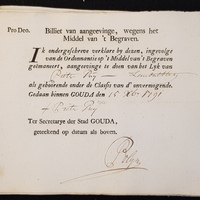 Pro Deo. Billiet van aangeevinge, wegens het
Middel van 't Begraven.
Ik ondergeschreve verklare by dezen, ingevolge
van de Ordonnantie op 't Middel van 't Begraven
geëmaneert, aangeevinge te doen van het Lyk van
Pieter
als gehoorende onder de Classis van d' onvermogende.
Gedaan binnen GOUDA den 15 1791
Pieter
Ter Secretarye der Stad GOUDA,
geteekend op datum als boven.